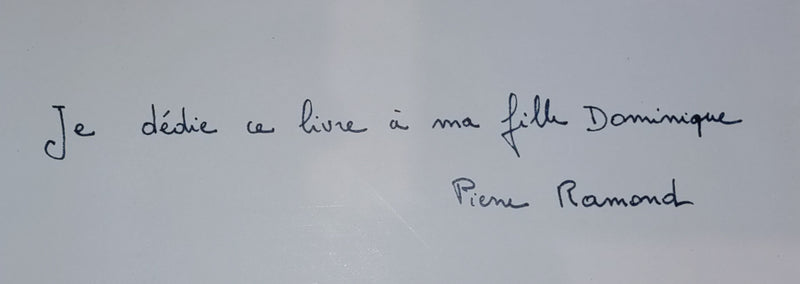 Je dédie ce livre à ma fille Dominique
Pierre Ramond